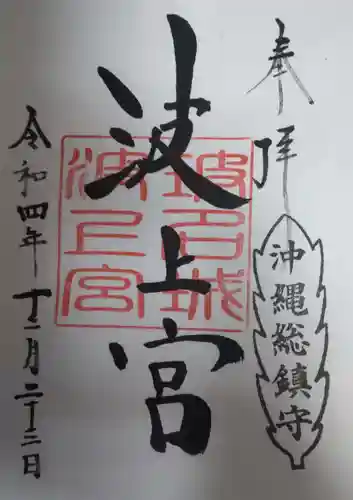 奉拝
沖縄総鎮守
波上宮
令和四年十二月二十三日
波上宮